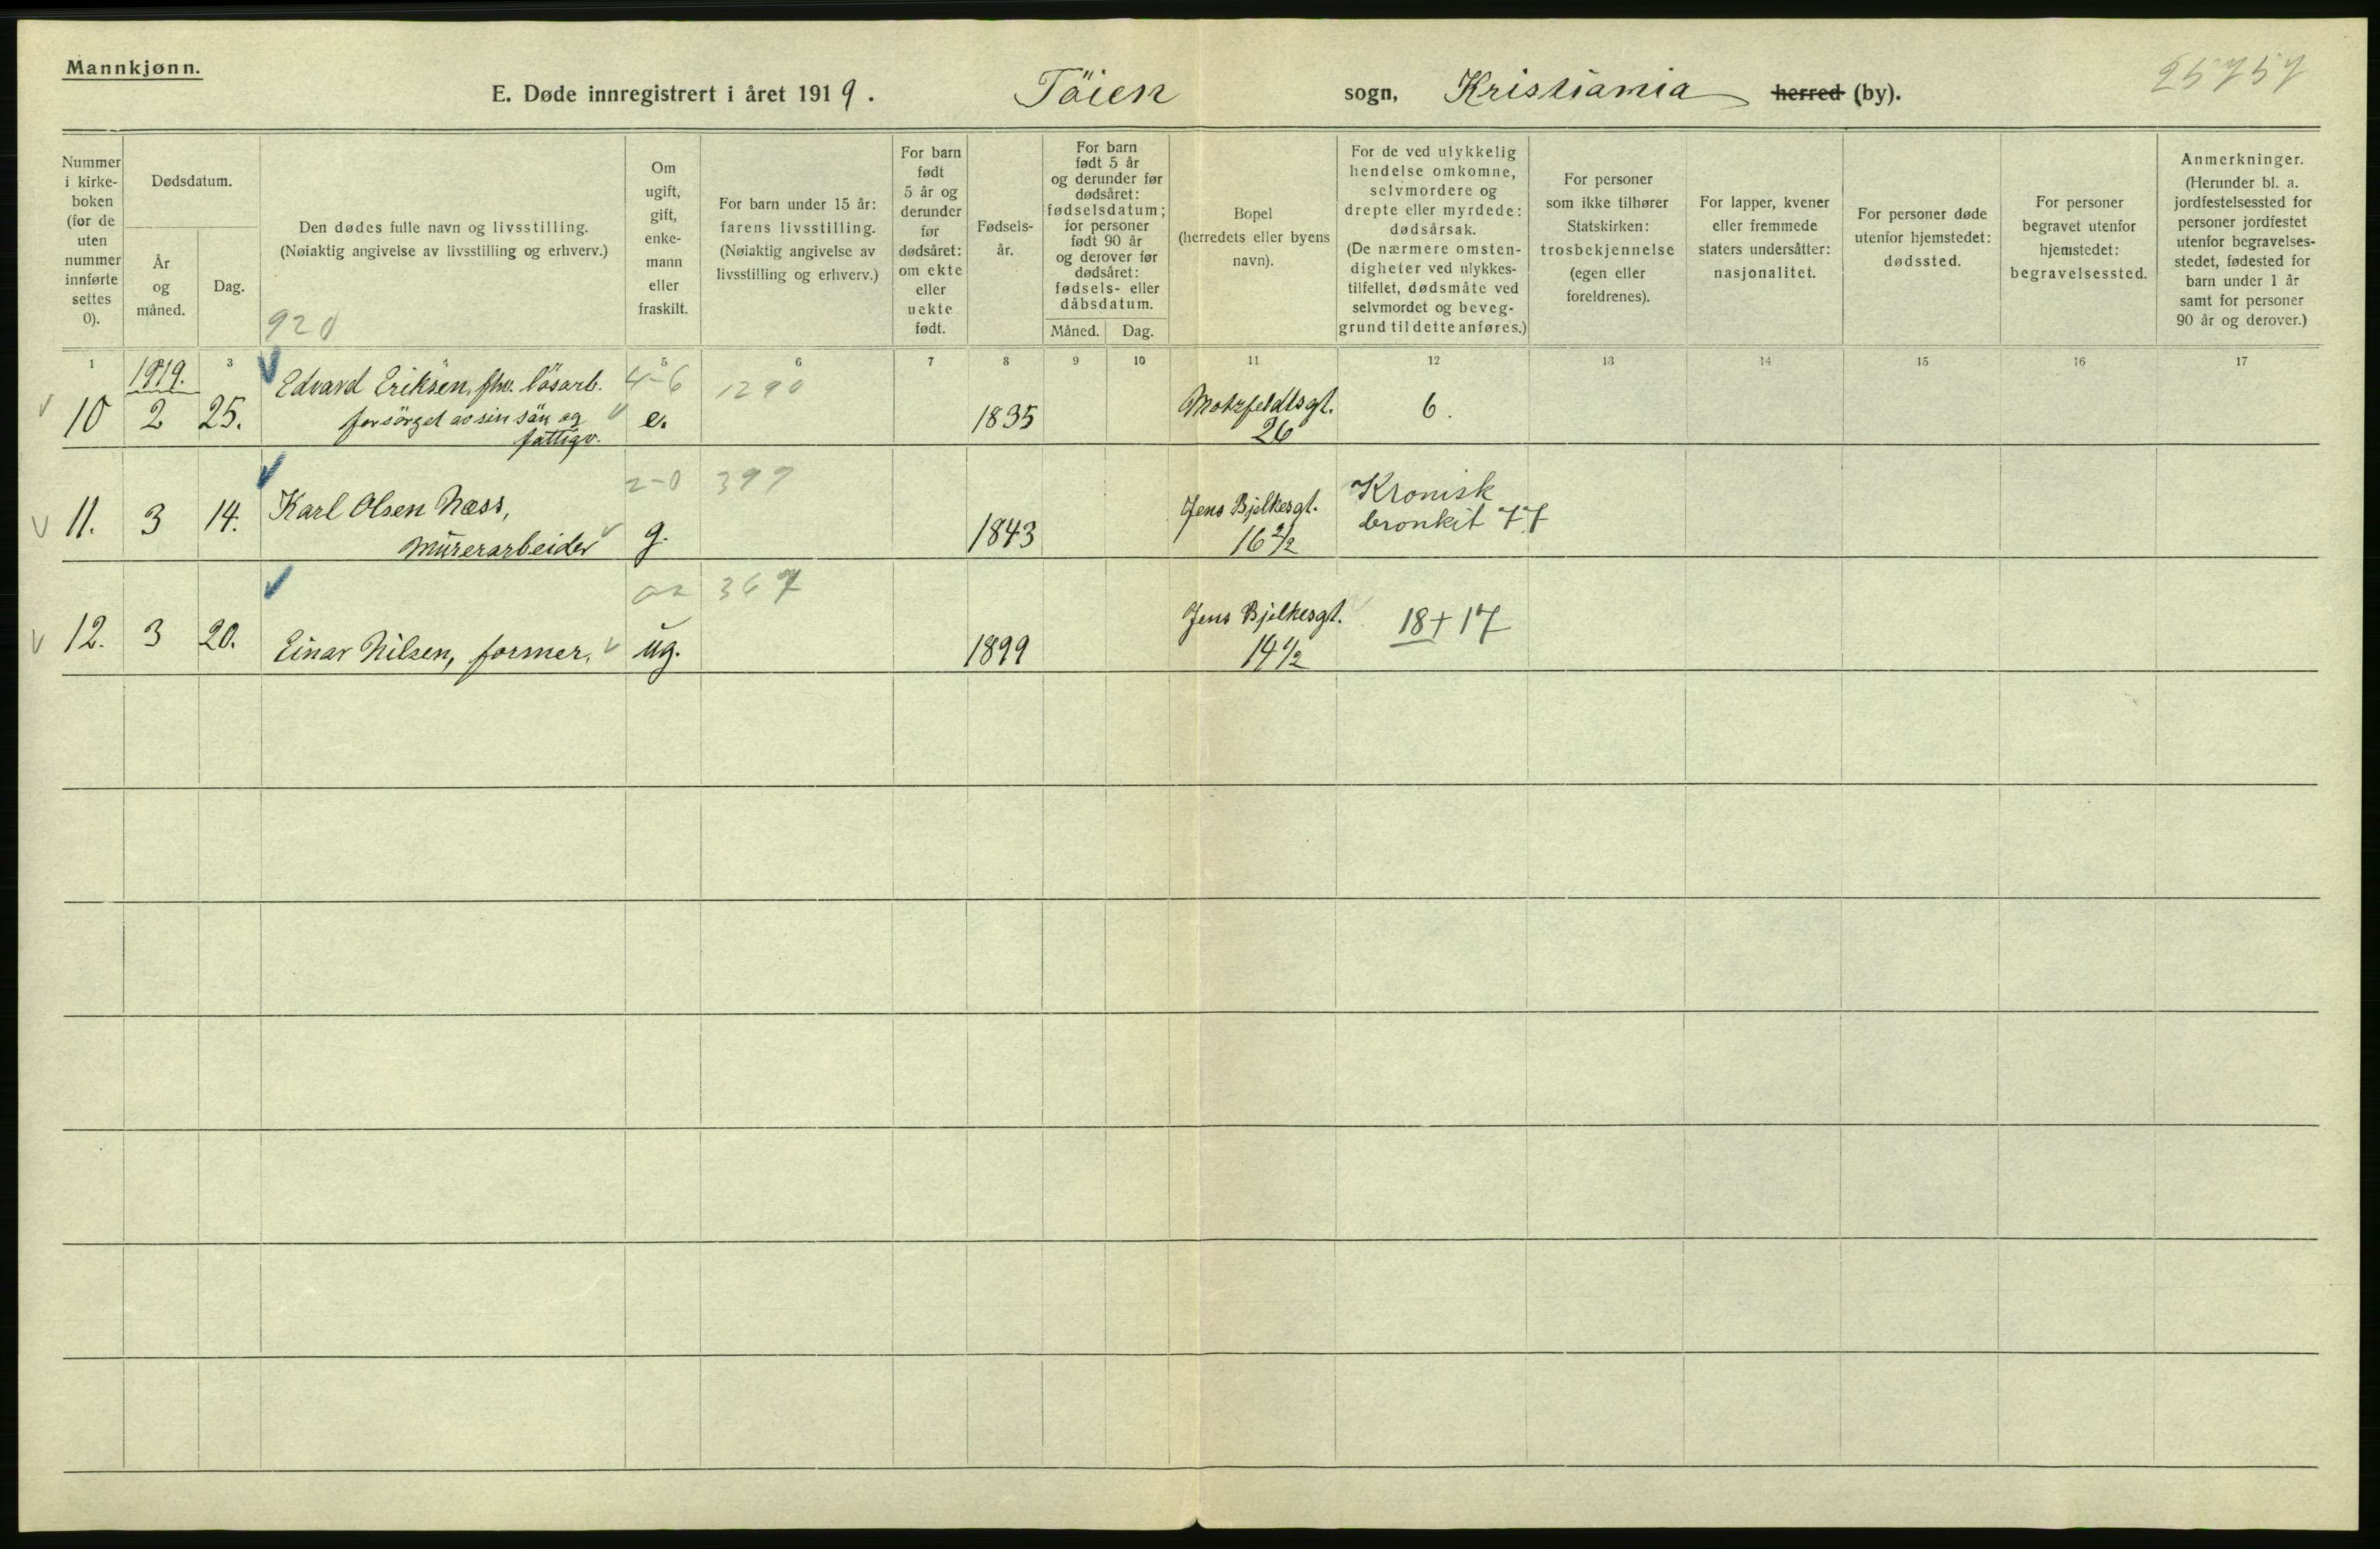 Mannkjønn.
E. Døde innregistrert i året 1919. Töien sogn, Kristiania herred (by).
25757
Nummer i kirke- boken (for de uten nummer innførte settes 0).
Dødsdatum.
År og måned.
Dag.
Den dødes fulle navn og livsstilling.
(Nøiaktig angivelse av livsstilling og erhverv.)
920
Om ugift, gift, enke- mann eller fraskilt.
For barn under 15 år:
farens livsstilling.
(Nøiaktig angivelse av
livsstilling og erhverv.)
For barn født 5 år og derunder før dødsåret: om ekte eller uekte født.
Fødsels- år.
For barn født 5 år og derunder før dødsåret: fødselsdatum; for personer født 90 år og derover før dødsåret: fødsels- eller dåbsdatum.
Måned. Dag.
Bopel
(herredets eller byens
navn).
For de ved ulykkelig
hendelse omkomne,
selvmordere og
drepte eller myrdede:
dødsårsak.
(De nærmere omsten-
digheter ved ulykkes-
tilfellet, dødsmåte ved
selvmordet og beveg-
grund til dette anføres.)
For personer
som ikke tilhører
Statskirken:
trosbekjennelse
(egen eller
foreldrenes).
For lapper, kvener
eller fremmede
staters undersåtter:
nasjonalitet.
For personer døde
utenfor hjemstedet:
dødssted.
For personer
begravet utenfor
hjemstedet:
begravelsessted.
Anmerkninger.
(Herunder bl. a.
jordfestelsessted for
personer jordfestet
utenfor begravelses-
stedet, fødested for
barn under 1 år
samt for personer
90 år og derover.)
1 3 5 6 7 8 9 10 11 12 13 14 15 16 17
1919.
10 2 25. Edvard Eriksen, fhv. lösarb. 4-6 1290
forsörget av sin sön og
fattigv.
e. 1835 Motzfeldtsgt.
26
6.
11. 3 14. Karl Olsen Næss, 2-0 399
Murerarbeider g. 1843 Jens Bjelkesgt.
16 2/2
Kronisk
bronkit 77
12. 3 20. Einar Nilsen, former, ug. 367 1899 Jens Bjelkesgt.
14 1/2
18 + 17